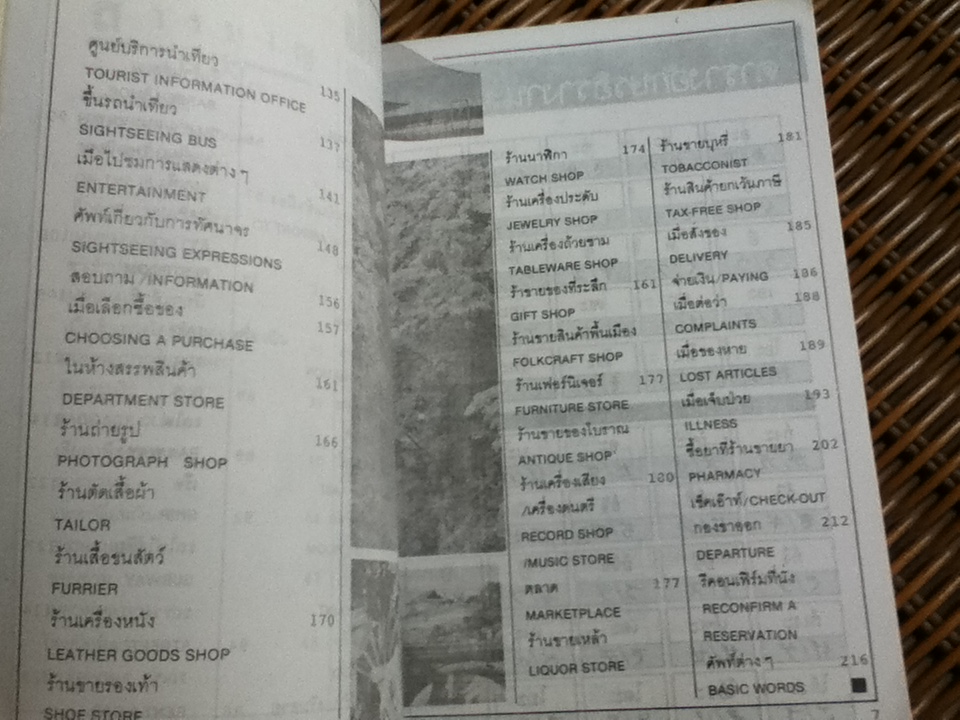 ศูนย์บริการนำเที่ยว
TOURIST INFORMATION OFFICE 135
ขึ้นรถนำเที่ยว
SIGHTSEEING BUS 137
เมื่อไปชมการแสดงต่าง ๆ
ENTERTAINMENT 141
ศัพท์เกี่ยวกับการทัศนาจร
SIGHTSEEING EXPRESSIONS 148
สอบถาม/INFORMATION
เมื่อเลือกซื้อของ 156
CHOOSING A PURCHASE 157
ในห้างสรรพสินค้า
DEPARTMENT STORE 161
ร้านถ่ายรูป
PHOTOGRAPH SHOP 166
ร้านตัดเสื้อผ้า
TAILOR
ร้านเสื้อขนสัตว์
FURRIER
ร้านเครื่องหนัง 170
LEATHER GOODS SHOP
ร้านขายรองเท้า
SHOE STORE
ร้านนาฬิกา 174
WATCH SHOP
ร้านเครื่องประดับ
JEWELRY SHOP
ร้านเครื่องถ้วยชาม
TABLEWARE SHOP
ร้าขายของที่ระลึก 161
GIFT SHOP
ร้านขายสินค้าพื้นเมือง
FOLKCRAFT SHOP
ร้านเฟอร์นิเจอร์ 177
FURNITURE STORE
ร้านขายของโบราณ
ANTIQUE SHOP
ร้านเครื่องเสียง 180
/เครื่องดนตรี
RECORD SHOP
/MUSIC STORE
ตลาด 177
MARKETPLACE
ร้านขายเหล้า
LIQUOR STORE
ร้านขายบุหรี่ 181
TOBACCONIST
ร้านสินค้ายกเว้นภาษี
TAX-FREE SHOP
เมื่อสั่งของ 185
DELIVERY
จ่ายเงิน/PAYING 186
เมื่อต่อว่า 188
COMPLAINTS
เมื่อของหาย 189
LOST ARTICLES
เมื่อเจ็บป่วย 193
ILLNESS
ซื้อยาที่ร้านขายยา 202
PHARMACY
เช็คเอ๊าท์/CHECK-OUT
กองขาออก 212
DEPARTURE
รีคอนเฟิร์มที่นั่ง
RECONFIRM A
RESERVATION
ศัพท์ต่าง ๆ 216
BASIC WORDS
7